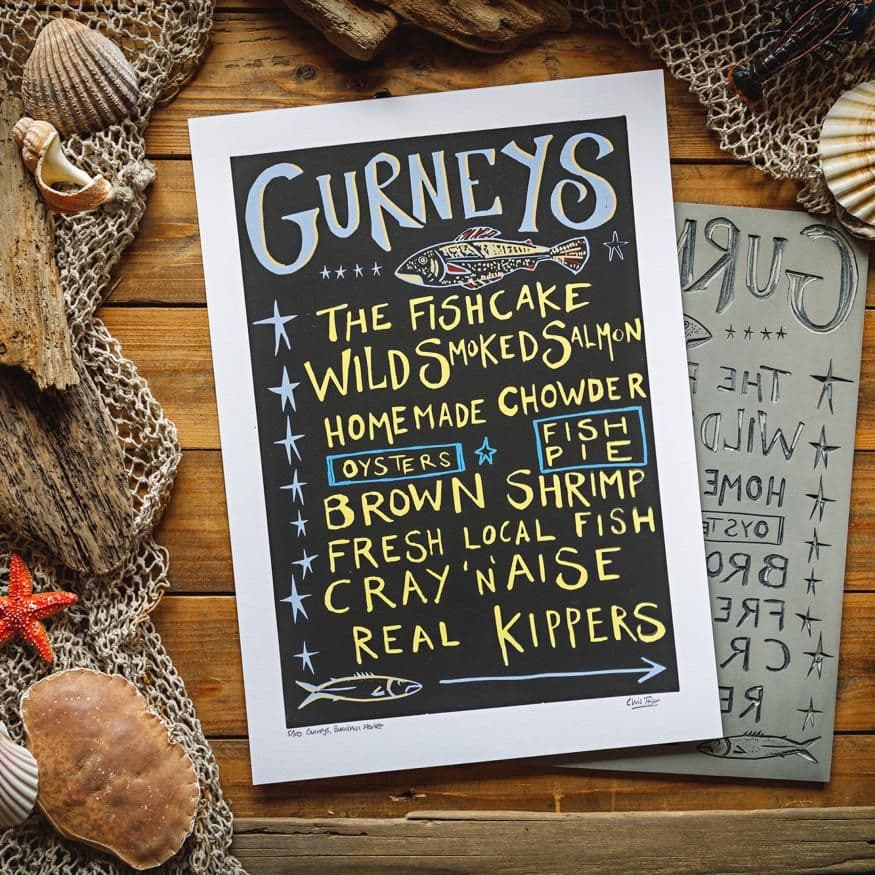 GURNEYS
THE FISHCAKE
WILD SMOKED SALMON
HOMEMADE CHOWDER
OYSTERS
FISH
PIE
BROWN SHRIMP
FRESH LOCAL FISH
CRAY 'N' AISE
REAL KIPPERS
Gurneys, Burnham Market
Chris
GURN
THE F
WILD
HOME
OYSTE
BRO
FRE
CR
RE